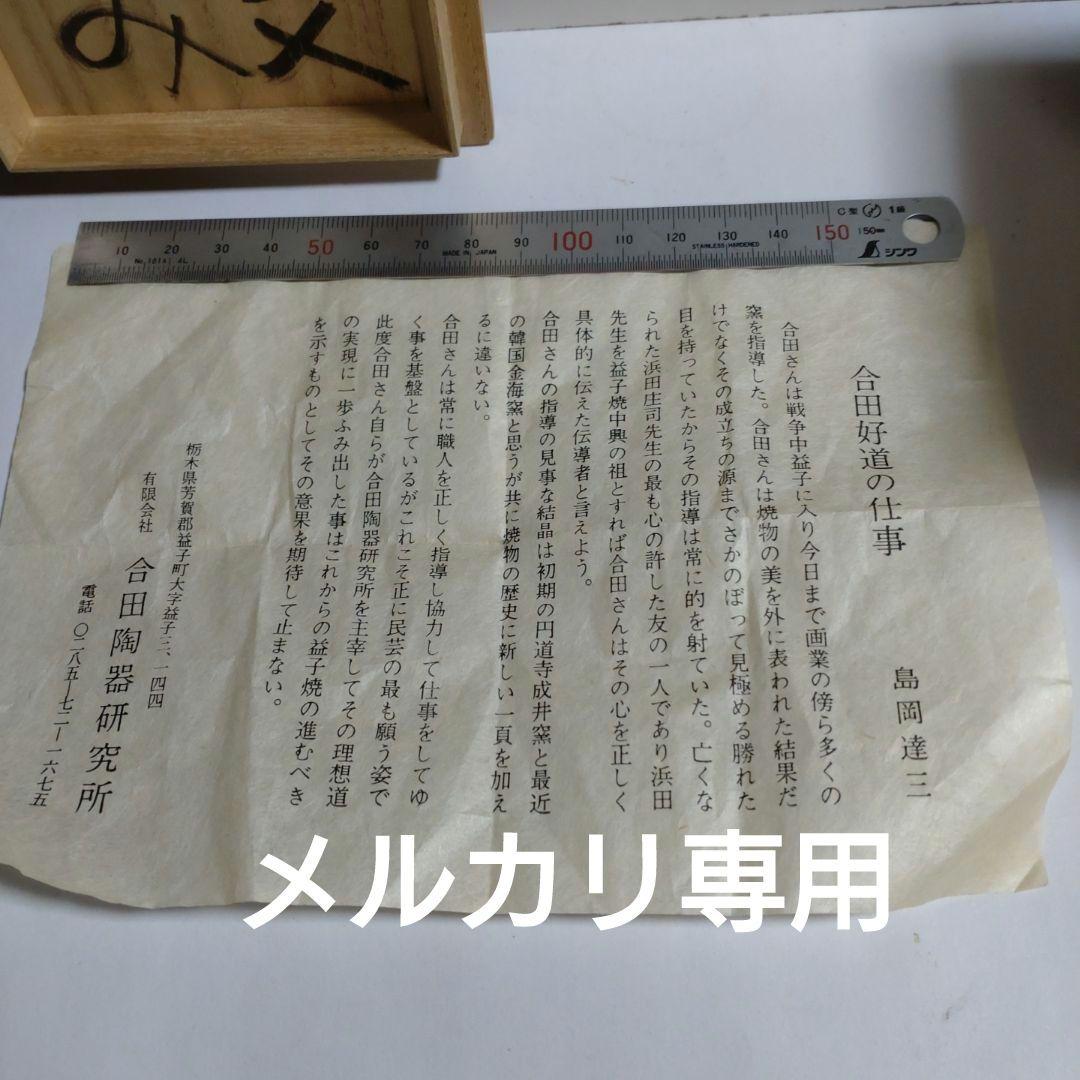 み文
10 20 30 40 50 60 70 80 90 100 110 120 130 140 150
C型 1級
150mm
MADE IN JAPAN
STAINLESS HARDENED
シンワ
合田好道の仕事
島岡達三
合田さんは戦争中益子に入り今日まで画業の傍ら多くの
窯を指導した。合田さんは焼物の美を外に表われた結果だ
けでなくその成立ちの源までさかのぼって見極める勝れた
目を持っていたからその指導は常に的を射ていた。亡くな
られた浜田庄司先生の最も心の許した友の一人であり浜田
先生を益子焼中興の祖とすれば合田さんはその心を正しく
具体的に伝えた伝導者と言えよう。
合田さんの指導の見事な結晶は初期の円道寺成井窯と最近
の韓国金海窯と思うが共に焼物の歴史に新しい一頁を加え
るに違いない。
合田さんは常に職人を正しく指導し協力して仕事をしてゆ
く事を基盤としているがこれこそ正に民芸の最も願う姿で
此度合田さん自らが合田陶器研究所を主宰してその理想道
の実現に一歩ふみ出した事はこれからの益子焼の進むべき
を示すものとしてその意果を期待して止まない。
栃木県芳賀郡益子町大字益子三、一四四
有限会社 合田陶器研究所
電話 〇二八五―七二―一六七五
メルカリ専用